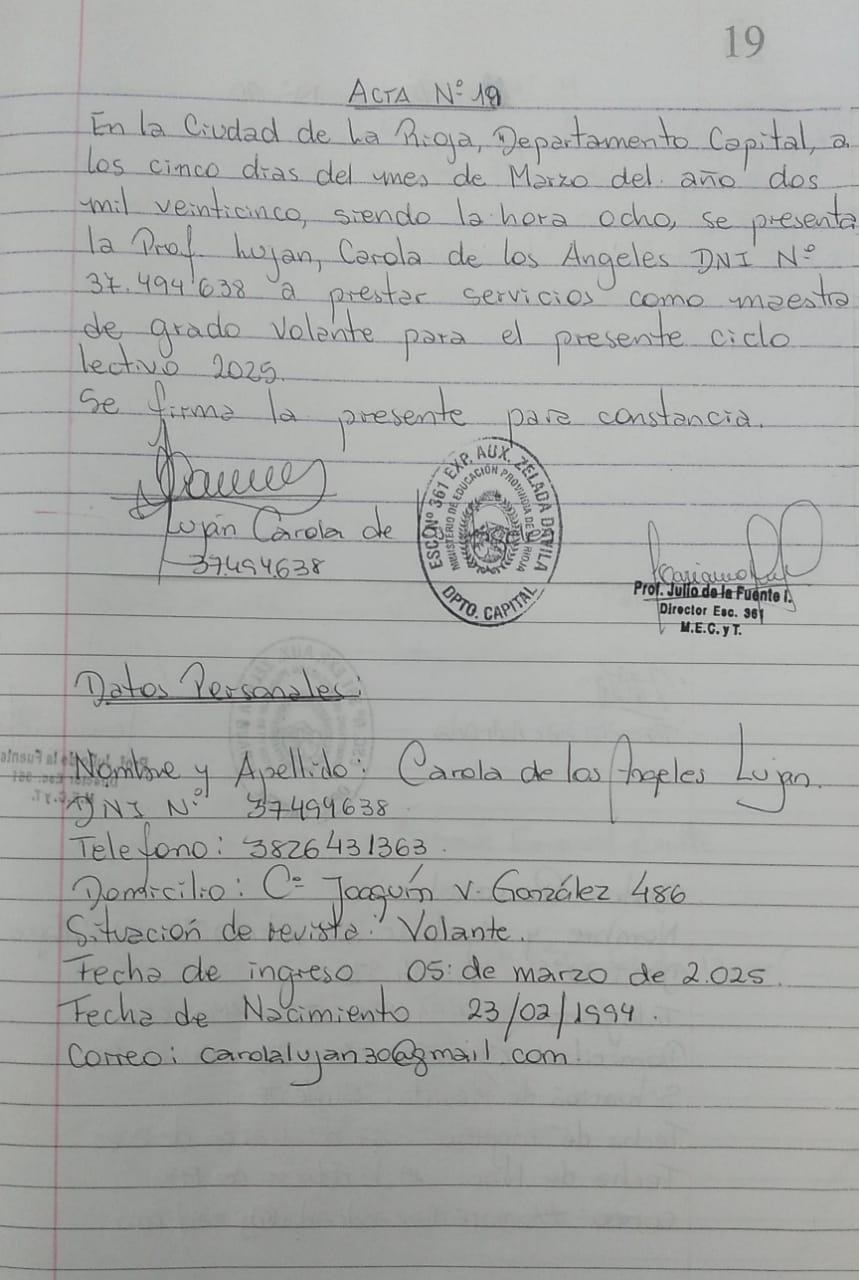 19
ACTA Nº 19
En la Ciudad de La Rioja, Departamento Capital, a
los cinco días del mes de Marzo del año dos
mil veinticinco, siendo la hora ocho, se presenta
la Prof. Lujan, Carola de los Angeles DNI Nº
37.494.638 a prestar servicios como maestra
de grado volante para el presente ciclo
lectivo 2025.
Se firma la presente para constancia.
Luján Carola de
37.494.638
ESC. Nº 361 EXP. AUX. ZELADA DAVILA
MINISTERIO DE EDUCACIÓN PROVINCIA DE LA RIOJA
DPTO. CAPITAL
Prof. Julio de la Fuente I.
Director Esc. 361
M.E.C. y T.
Datos Personales:
Nombre y Apellido: Carola de los Angeles Lujan.
DNI Nº 37494638
Telefono: 3826431363.
Domicilio: Cº Joaquín V. González 486
Situación de revista: Volante.
Fecha de ingreso 05 de marzo de 2.025.
Fecha de Nacimiento 23/02/1994.
Correo: carolalujan30@gmail.com